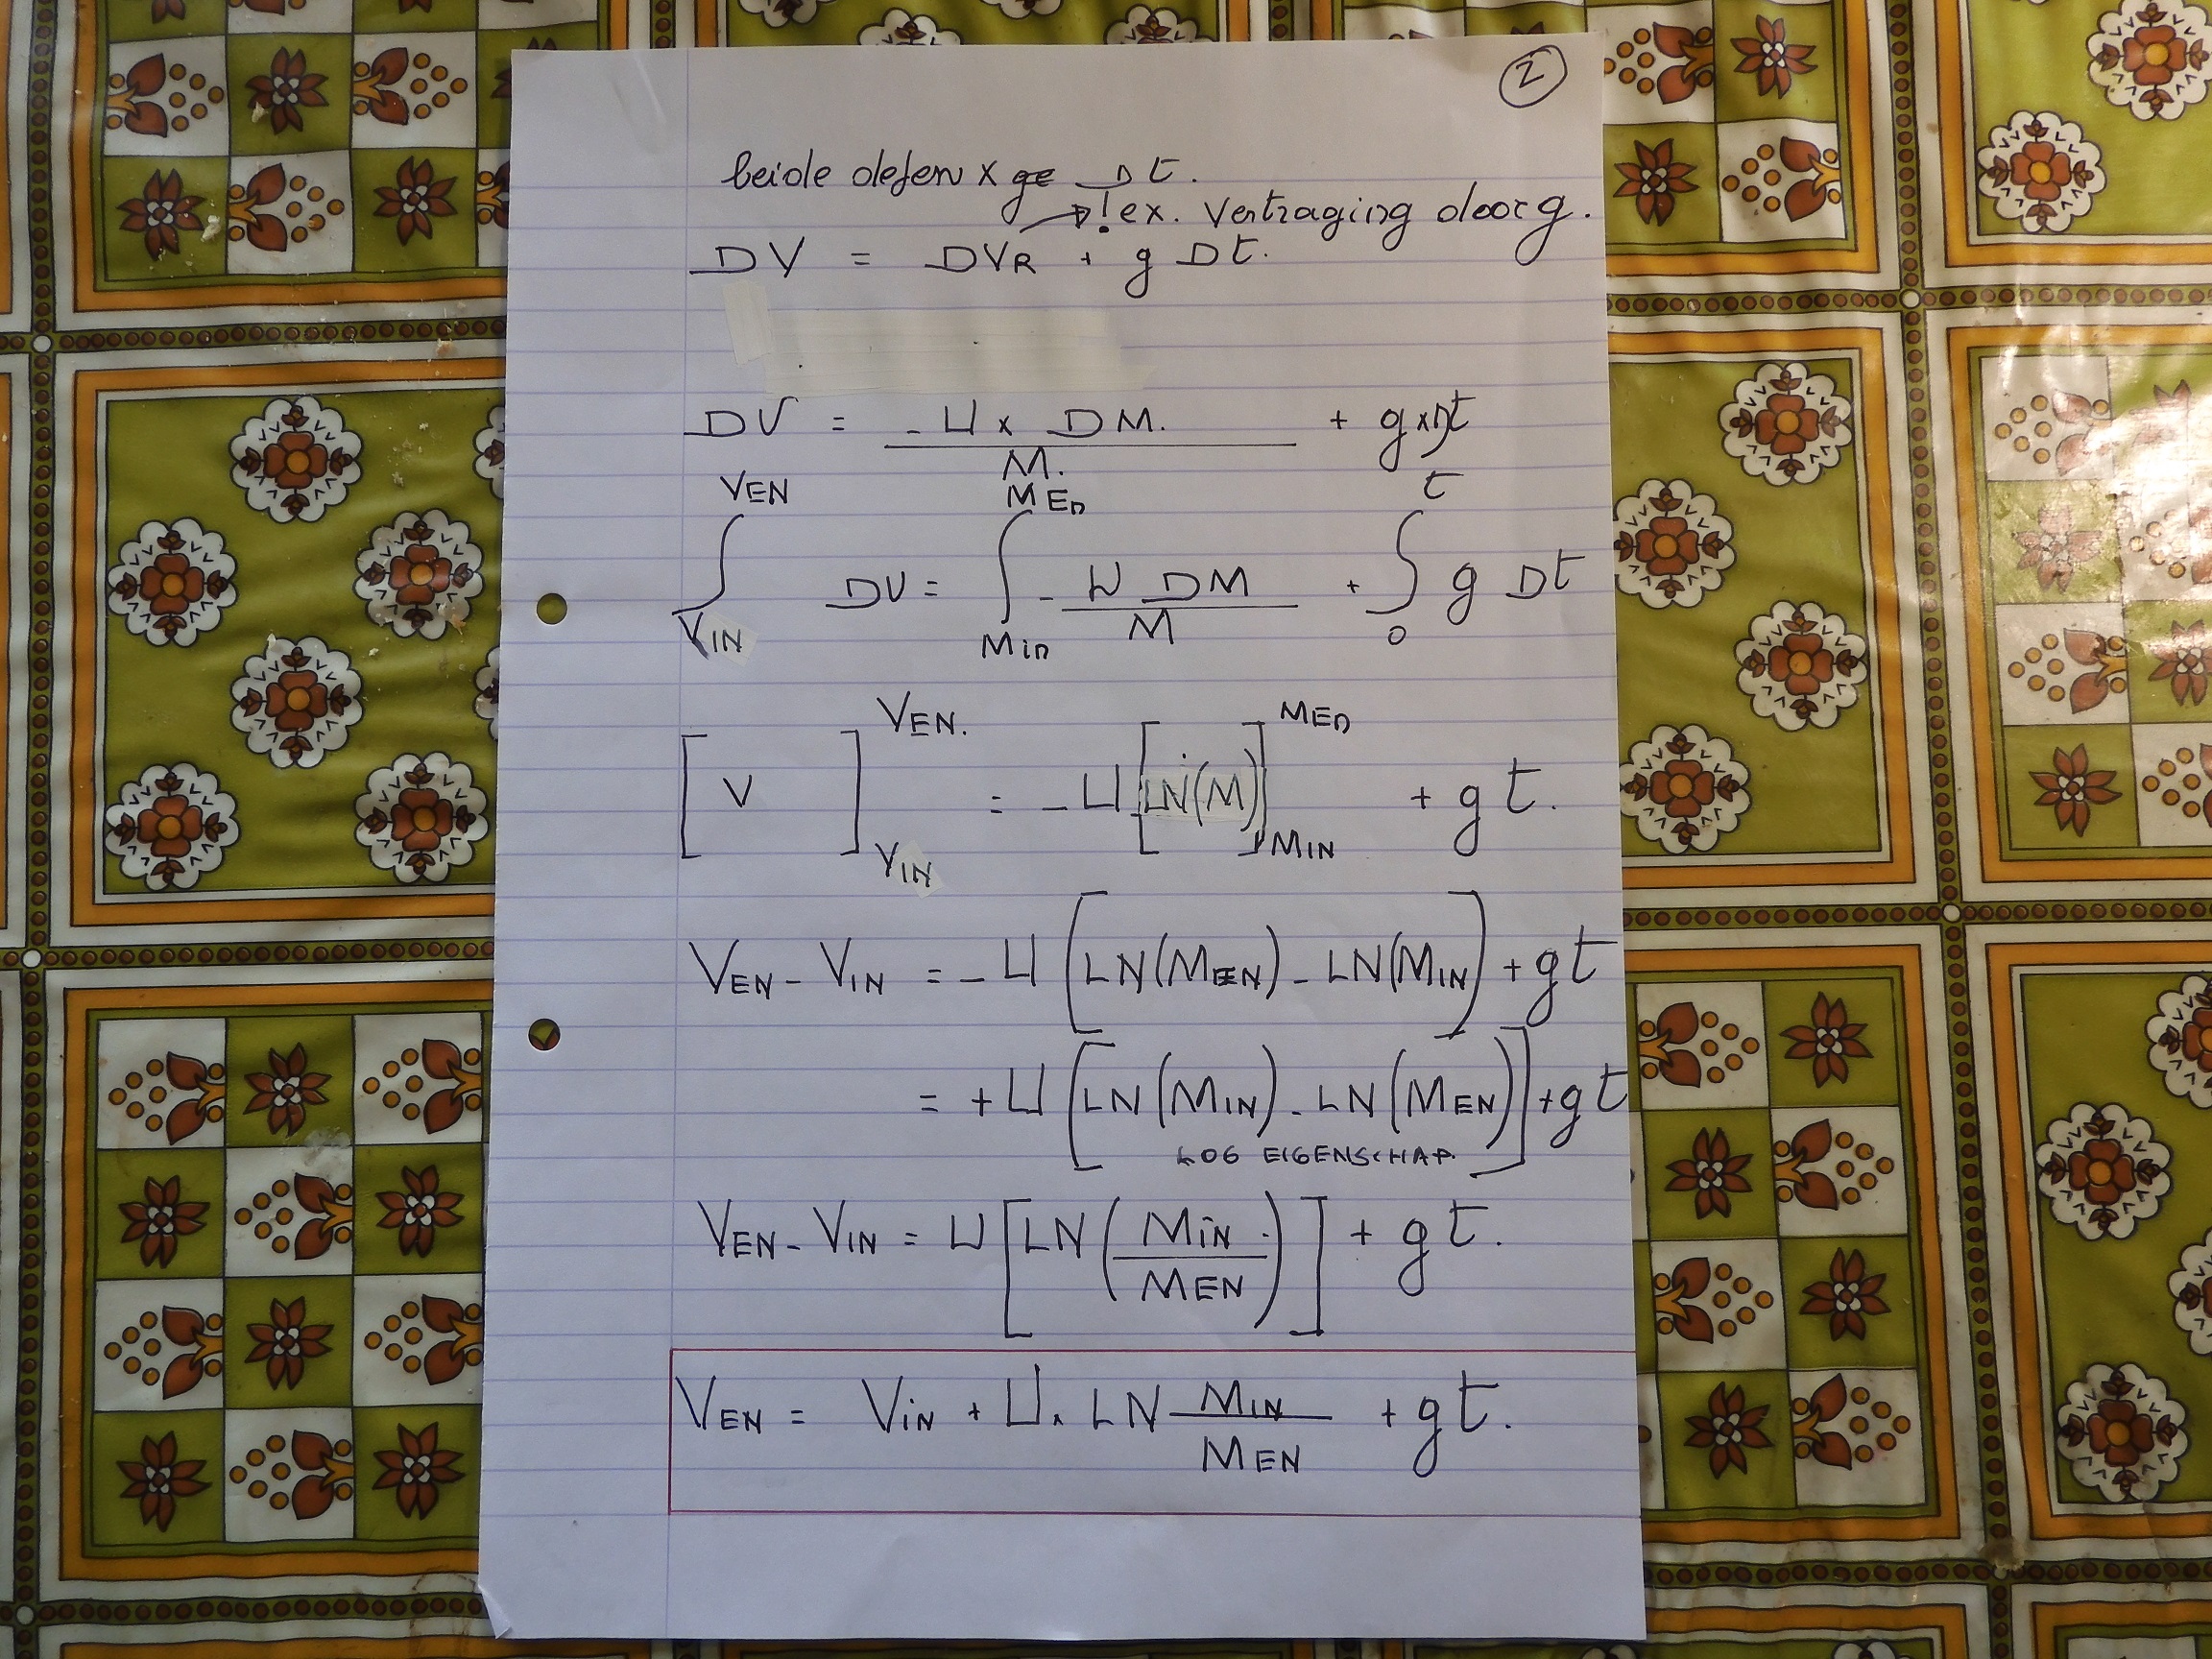 2
beide delen x ge Dt.
! ex. Vertraging door g.
DV = DVR + g Dt.
DV = - U x DM. / M. + g x Dt
VEN MED t
∫ DV = ∫ - U DM / M + ∫ g Dt
VIN Min 0
[ V ] VEN. VIN = - U [LN(M)] MED MIN + g t.
VEN - VIN = - U [LN(MEN) - LN(MIN)] + gt
= + U [LN(MIN) - LN(MEN)] + gt
LOG EIGENSCHAP.
VEN - VIN = U [LN (MiN / MEN)] + gt.
VEN = ViN + U x LN MIN / MEN + gt.